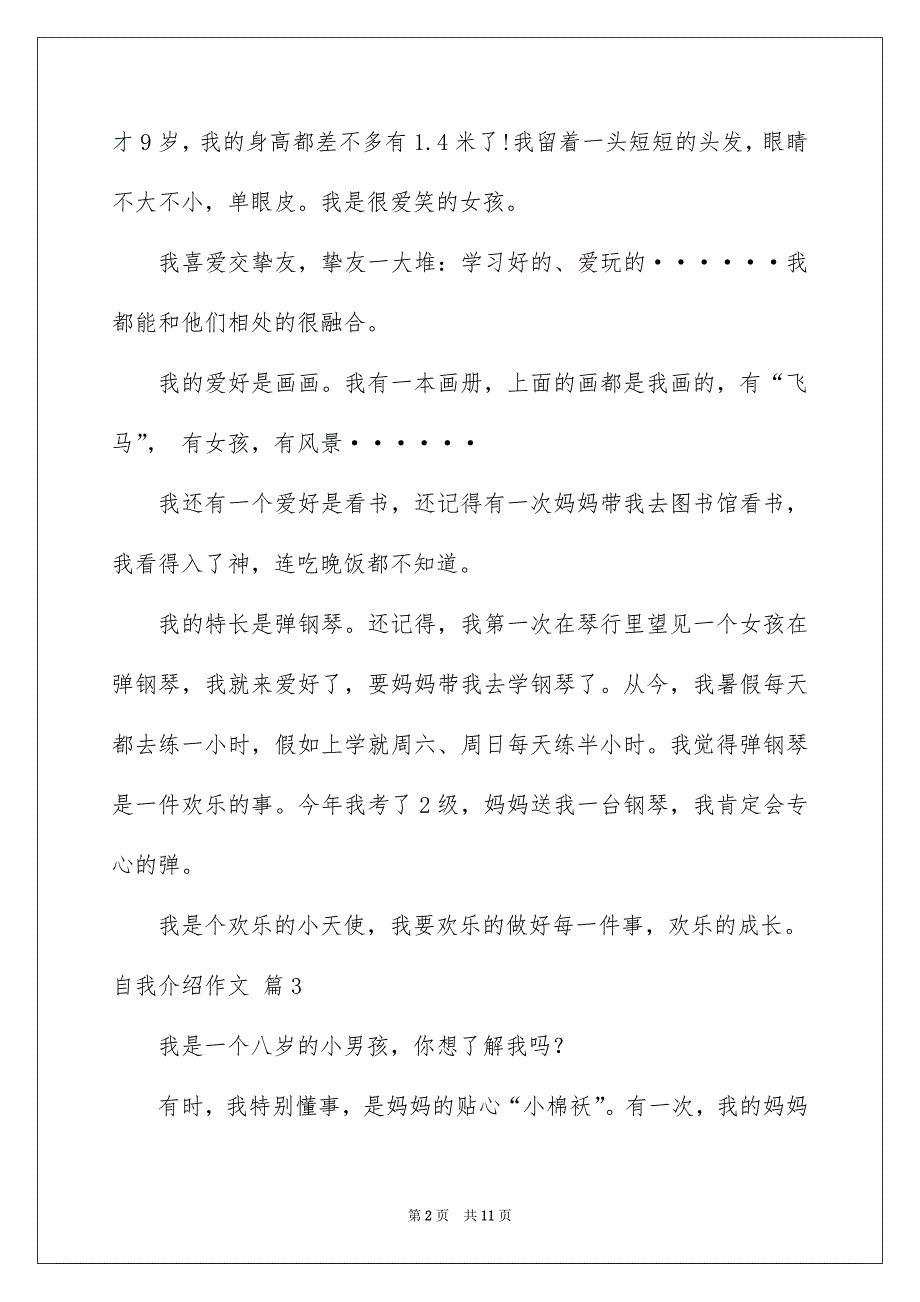 才9岁，我的身高都差不多有1.4米了!我留着一头短短的头发，眼睛
不大不小，单眼皮。我是很爱笑的女孩。
我喜爱交挚友，挚友一大堆：学习好的、爱玩的······我
都能和他们相处的很融合。
我的爱好是画画。我有一本画册，上面的画都是我画的，有“飞
马”， 有女孩，有风景······
我还有一个爱好是看书，还记得有一次妈妈带我去图书馆看书，
我看得入了神，连吃晚饭都不知道。
我的特长是弹钢琴。还记得，我第一次在琴行里望见一个女孩在
弹钢琴，我就来爱好了，要妈妈带我去学钢琴了。从今，我暑假每天
都去练一小时，假如上学就周六、周日每天练半小时。我觉得弹钢琴
是一件欢乐的事。今年我考了2级，妈妈送我一台钢琴，我肯定会专
心的弹。
我是个欢乐的小天使，我要欢乐的做好每一件事，欢乐的成长。
自我介绍作文 篇3
我是一个八岁的小男孩，你想了解我吗?
有时，我特别懂事，是妈妈的贴心“小棉袄”。有一次，我的妈妈
第2页 共11页